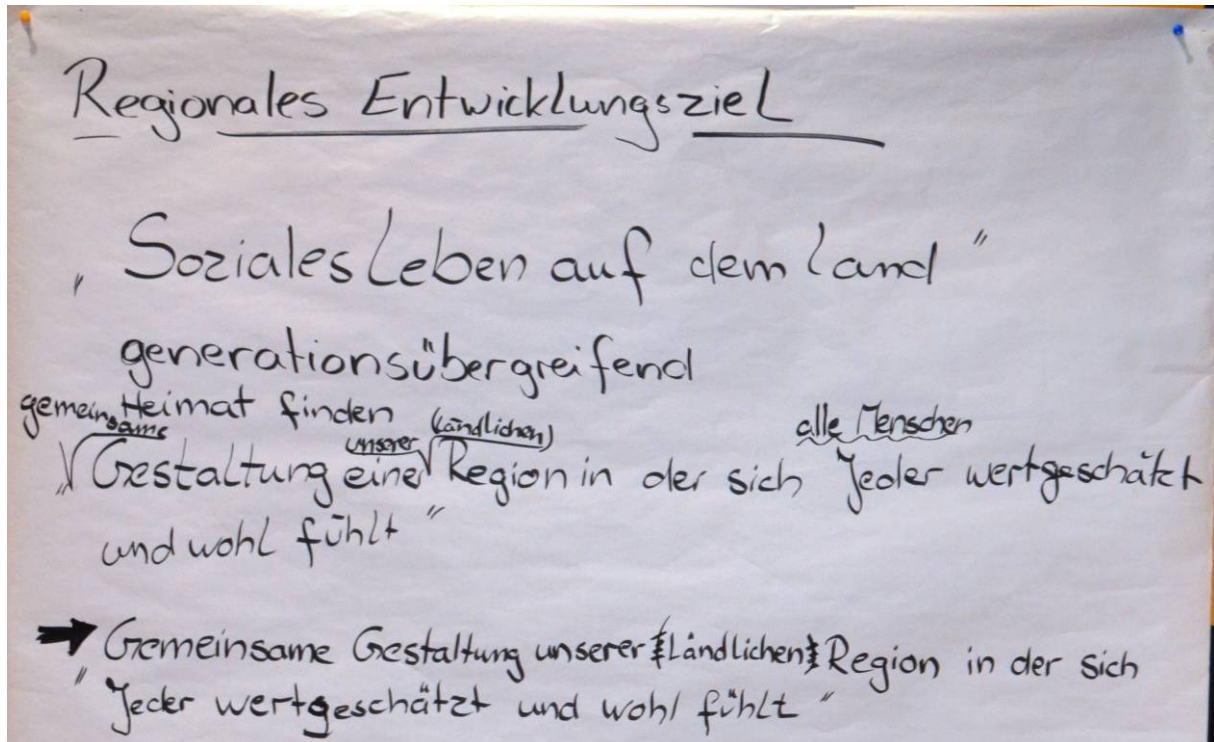 Regionales Entwicklungsziel
„Soziales Leben auf dem Land"
generationsübergreifend
Heimat finden
gemeinsame unserer (ländlichen) alle Menschen
„Gestaltung einer Region in der sich Jeder wertgeschätzt
und wohl fühlt"
→ Gemeinsame Gestaltung unserer (Ländlichen) Region in der sich
"Jeder wertgeschätzt und wohl fühlt"